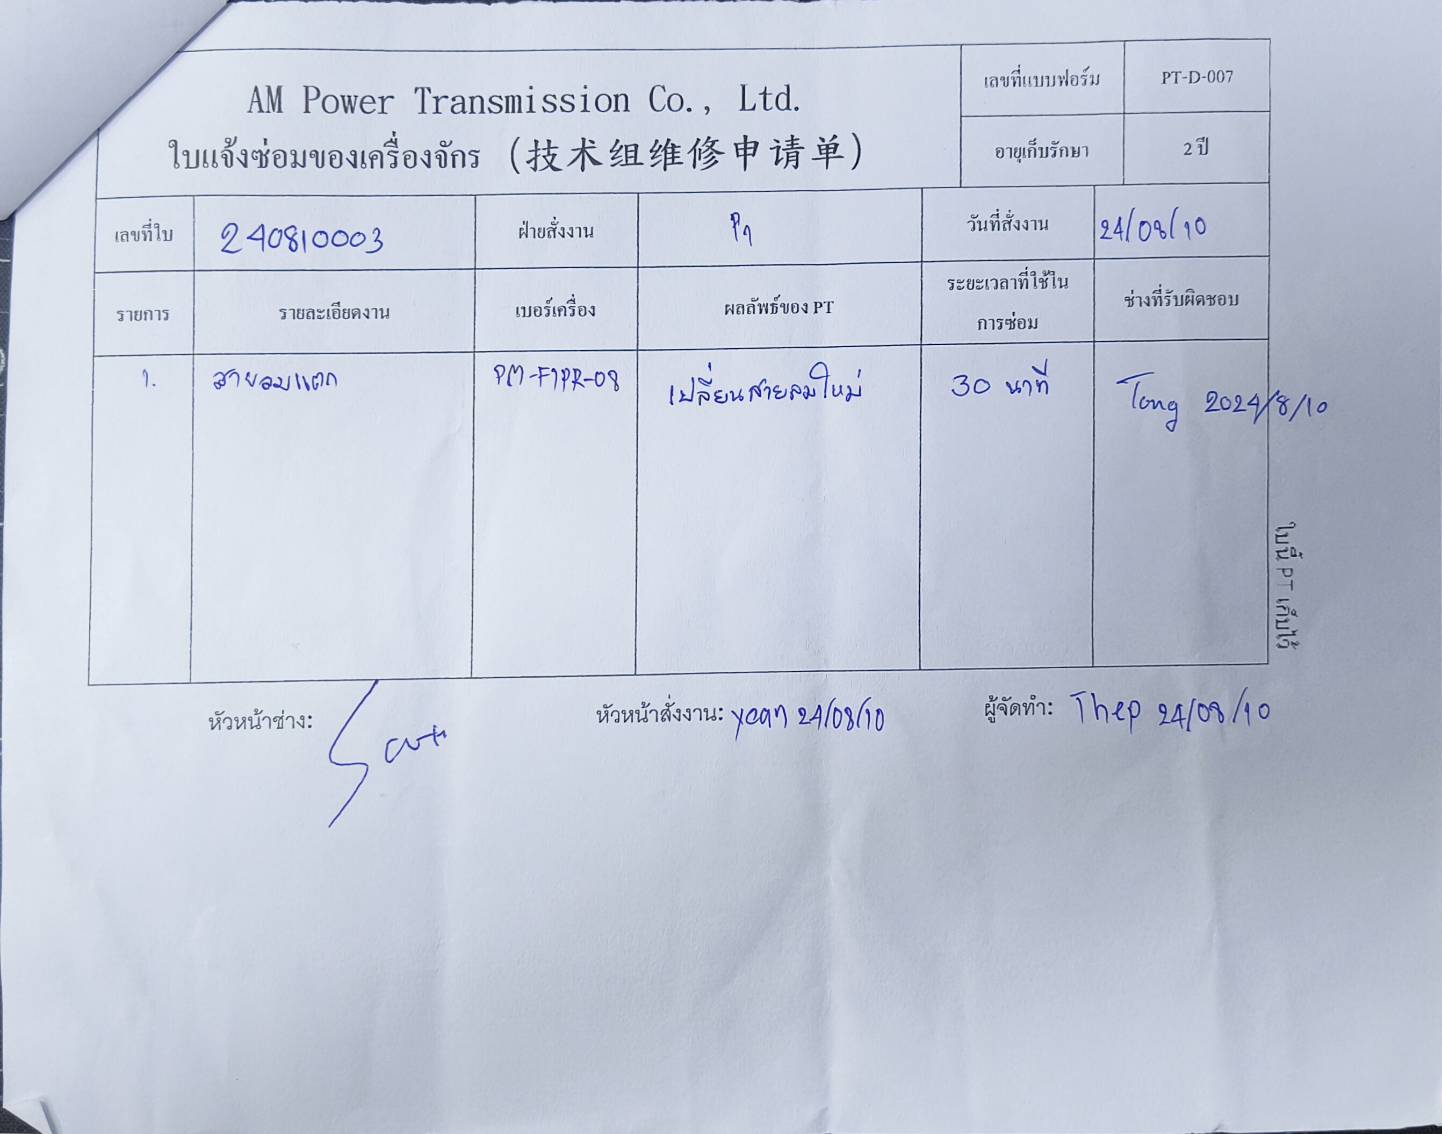 AM Power Transmission Co., Ltd.
ใบแจ้งซ่อมของเครื่องจักร (技术组维修申请单)
เลขที่แบบฟอร์ม PT-D-007
อายุเก็บรักษา 2 ปี
เลขที่ใบ 240810003 ฝ่ายสั่งงาน วันที่สั่งงาน 24/08/10
รายการ รายละเอียดงาน เบอร์เครื่อง ผลลัพธ์ของ PT ระยะเวลาที่ใช้ใน
การซ่อม ช่างที่รับผิดชอบ
1. สายลมแตก PM-F1PR-08 เปลี่ยนสายลมใหม่ 30 นาที Tong 2024/8/10
ใบนี้ PT เก็บไว้
หัวหน้าช่าง: หัวหน้าสั่งงาน: yean 24/08/10 ผู้จัดทำ: Thep 24/08/10